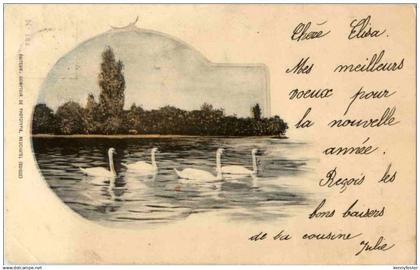 Chère Elisa.
Mes meilleurs
voeux pour
la nouvelle
année.
Reçois les
bons baisers
de ta cousine
Julie